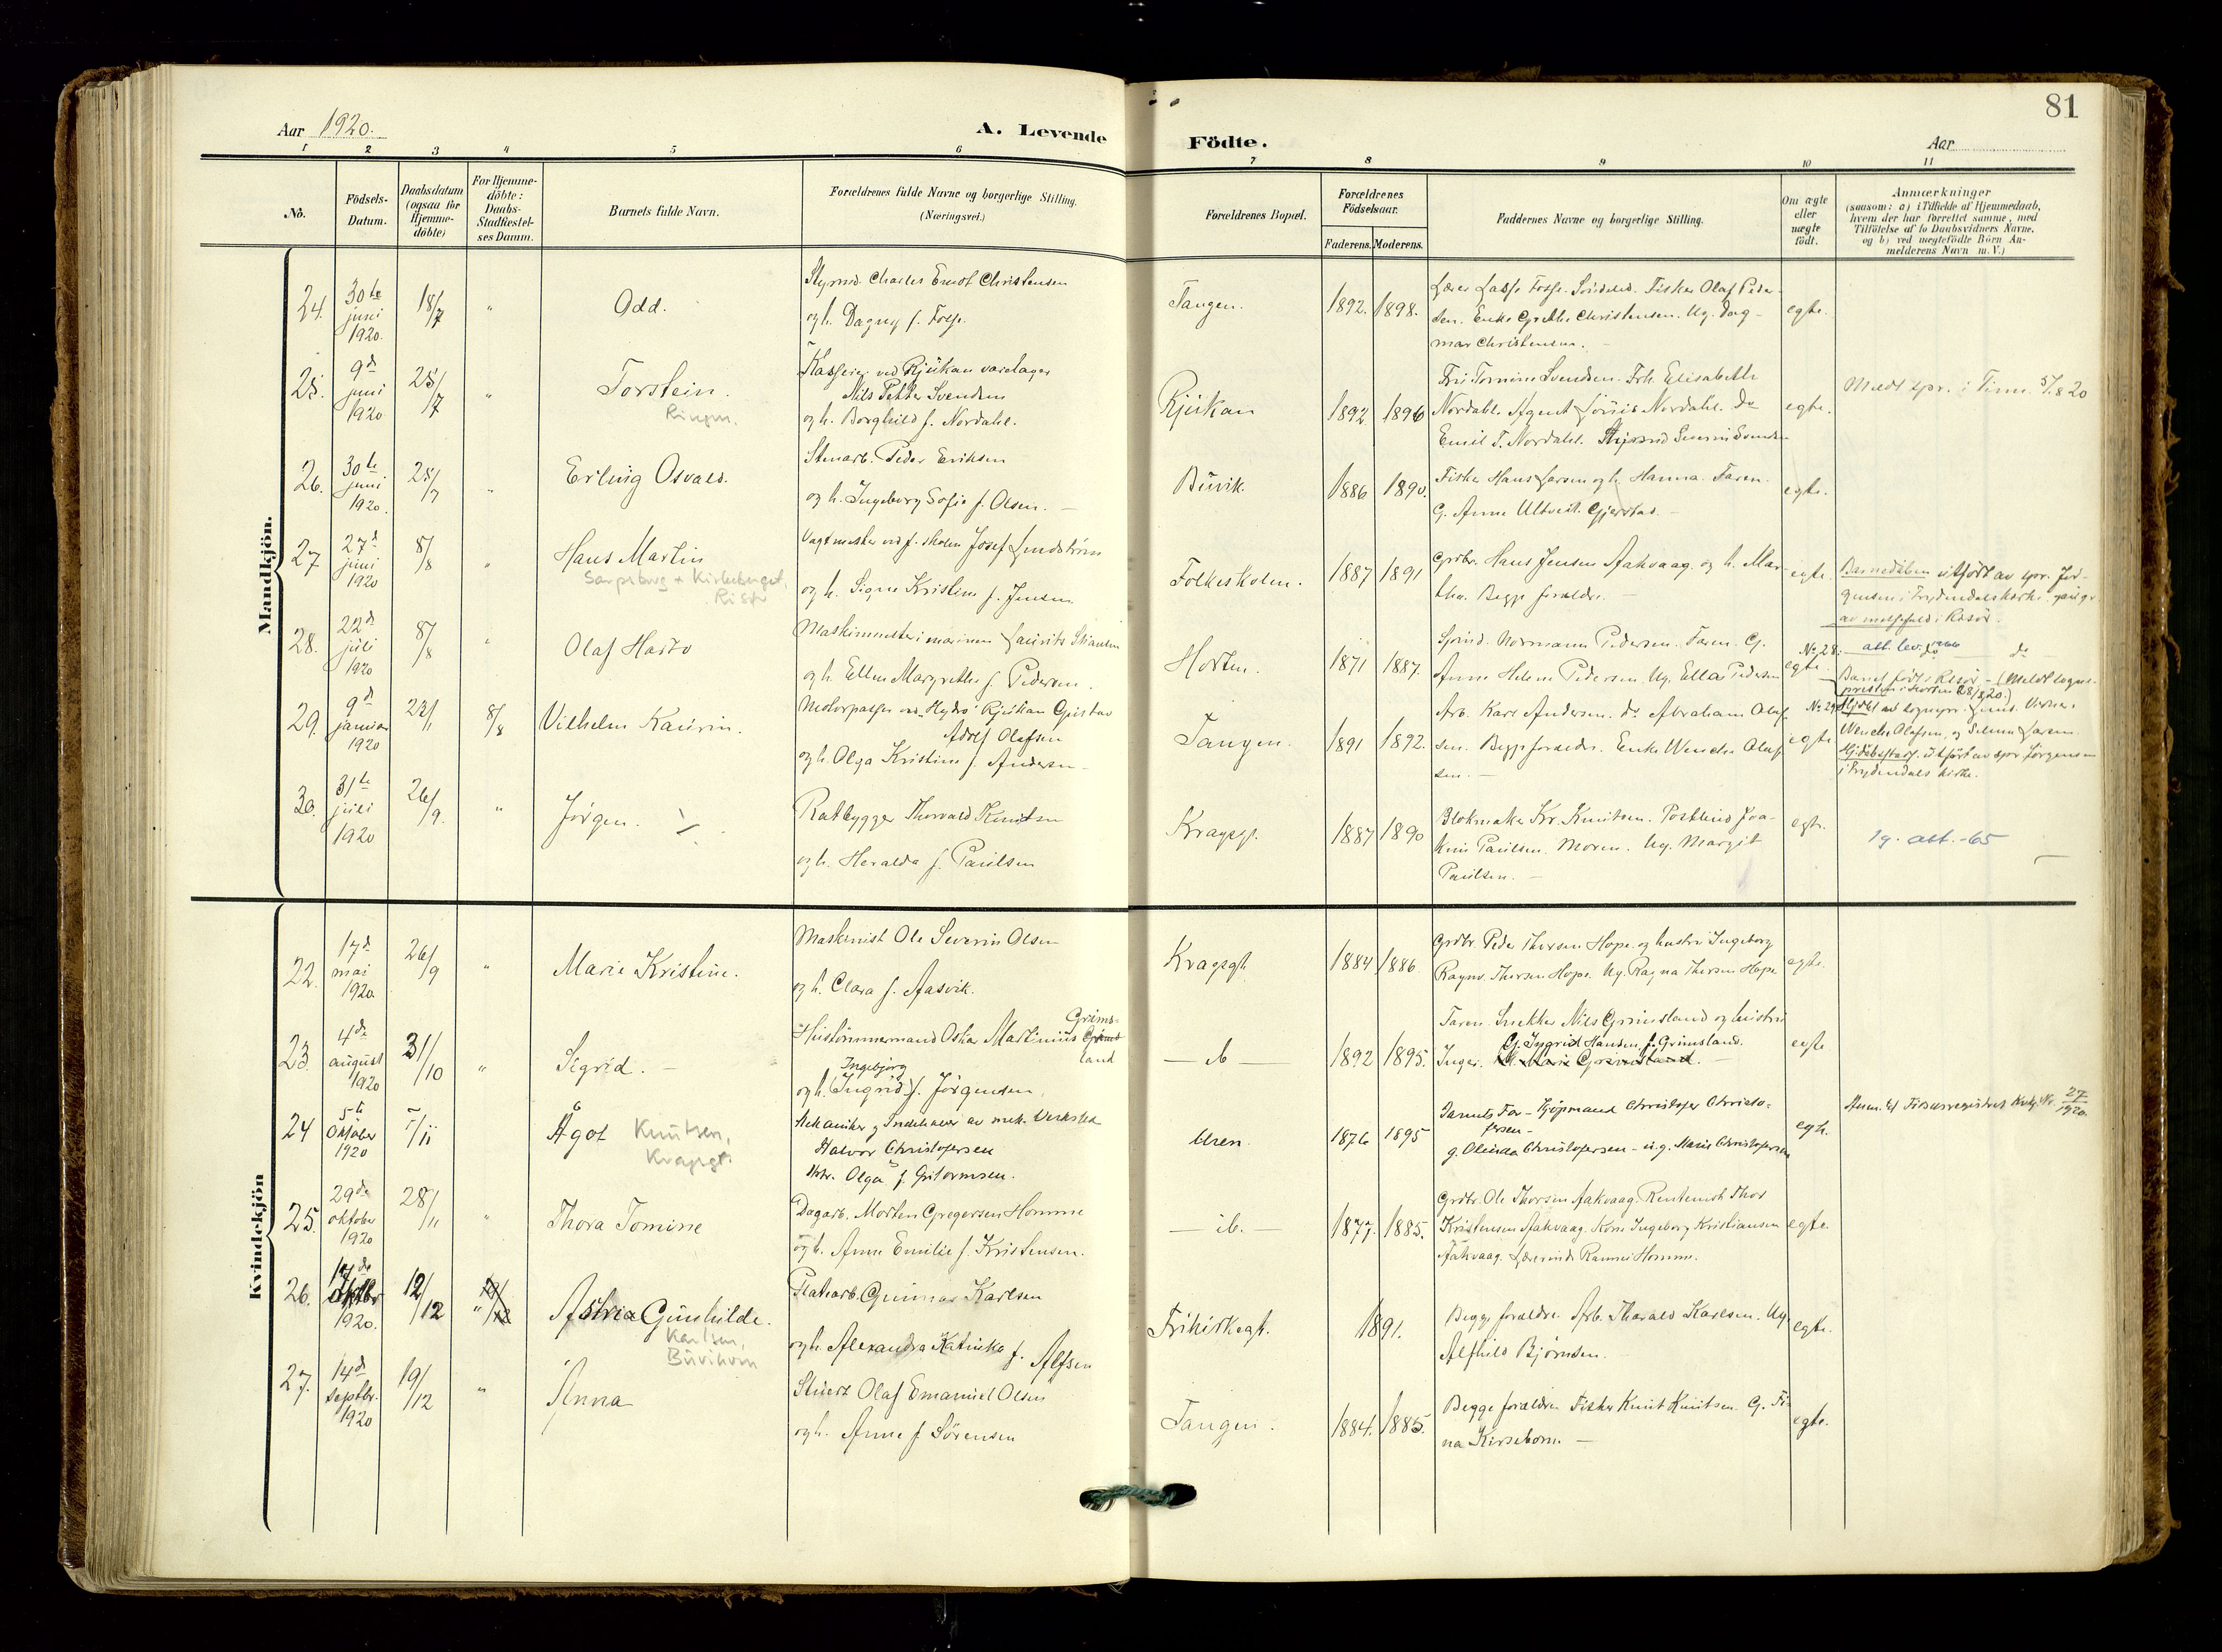 81
Aar 1920.
A. Levende Födte.
Aar
1 2 3 4 5 6 7 8 9 10 11
No.
Födsels-
Datum.
Daabsdatum
(ogsaa for
Hjemme-
döbte)
For Hjemme-
döbte:
Daabs-
Stadfæstel-
ses Datum.
Barnets fulde Navn.
Forældrenes fulde Navne og borgerlige Stilling.
(Næringsvei.)
Forældrenes Bopæl.
Forældrenes
Födselsaar.
Faderens. Moderens.
Faddernes Navne og borgerlige Stilling.
Om ægte
eller
uægte
född.
Anmærkninger
(saasom: a) i Tilfælde af Hjemmedaab,
hvem der har forrettet samme, med
Tilföielse af to Daabsvidners Navne,
og b) ved uægtefödte Börn An-
melderens Navn m. V.)
Mandkjön.
24. 30te juni 1920. 18/7 " Odd.
Styrmd. Charles Ernst Christensen
og h. Dagny f. Fosse.
Tangen. 1892. 1898.
Fisker Olaf Peder-
sen. Enke Grethe Christensen. Ug. Dag-
mar Christensen. —
egte.
25. 9de juni 1920 25/7 " Torstein.
Kasserer ved Rjukan varelager
Nils Petter Svendsen
og h. Borghild f. Nordahl.
Rjukan 1892 1896
Fru Tomine Svendsen. Frk. Elisabeth
Nordahl. Agent Louis Nordahl. do
Emil T. Nordahl. Styrmd Severin Svendsen
egte.
Meldt spr. i Tinn 5/8 20
26. 30te juni 1920. 25/7 " Erling Osvald.
Stenarb. Peder Eriksen
og h. Ingeborg Sofie f. Olsen. —
Buvik. 1886 1890.
Fisker Hans Larsen og h. Hanna. Faren.
G. Anne Gjerstad. —
egte.
27 27de juni 1920 8/8 " Hans Martin
Sarpsborg
Vagtmester ved f. skolen Josef Lundstrøm
og h. Signe Kristine f. Jensen
Folkeskolen. 1887 1891
Grdbr. Hans Jensen Aakvaag. og h. Mar-
tha. Begge forældre. —
egte.
Barnedåben utført av spr. Jør-
gensen i Frydendals kirke
28. 22de juli 1920 8/8 " Olaf Harto
Maskinmester i marinen
og h. Ellen Margrethe f. Pedersen.
Horten. 1871 1887.
Normann Pedersen. Faren. G.
Anne Helene Pedersen. Ug. Ella Pedersen
egte.
No 28: do do
Barnet født i Risør — (Meldt sogne-
presten i Horten 28/8 20.)
29. 9de januar 1920 23/1 8/8 Vilhelm Kaurin.
Motorpasser ved „Hydro" Rjukan Gustav
Adolf Olafsen
og h. Olga Kristine f. Andersen —
Tangen. 1891 1892.
Arb. Karl Andersen. do Abraham Olaf-
sen. Begge forældre. Enke Wenche Olaf-
sen. —
egte
Wenche Olafsen, og Selma Larsen.
utført av spr Jørgensen
i Frydendals kirke.
30. 31te juli 1920 26/9. " Jørgen.
Ratbygger Thorvald Knutsen
og h. Heralda f. Paulsen
Kragsgt. 1887 1890
Blokmaker Kr. Knutsen. Postbud Joa-
kim Paulsen. Moren. Ug. Margit
Paulsen. —
egte.
1g. att. -65
Kvindekjön
22. 17de mai 1920. 26/9 " Marie Kristine.
Maskinist Ole Severin Olsen
og h. Clara f. Aasvik.
Kragsgt. 1884 1886
Grdbr. Peder Thorsen Hope. og hustru Ingeborg
Thorsen Hope. Ug. Ragna Thorsen Hope.
egte.
23. 4de august 1920 31/10 " Sigrid. —
Hustømmermand Oskar Martinius Grims-
land
Ingebjørg
og h. (Ingrid) f. Jørgensen
— ib — 1892 1895.
Faren. Snekker Nils Grimsland og hustru
Inger. G. Ingrid Hansen, f. Grimsland.
egte
24 5te oktober 1920 7/11 Ågot Knutsen,
Kragsgt.
Mekaniker og Indehaver av mek. Verksted
Halvor Christofersen
Hstr. Olga f. Guttormsen.
Uren. 1876 1895
Barnets Far — Kjøpmand Christofer Christo-
fersen —
g. Olinda Christofersen — u.g. Marie Christofersen
egte.
Anm. til Fødselsregistret Nr. 27/1920
25. 29de oktober 1920 28/11 " Thora Tomine
Dagarb. Morten Gregersen Homme
og h. Anne Emilie f. Kristensen.
— ib. — 1877. 1885.
Grdbr. Ole Thorsen Aakvaag. Rentenist Thor
Kristensen Aakvaag. Kone Ingeborg Kristiansen
Aakvaag. Homme.
egte.
26. 1920. 12/12 " Astrid Gunhilde.
Karlsen,
Buvihorn
Platearb. Gunnar Karlsen
og h. Alexandra Katinka f. Alfsen
Frikirkegt. 1891.
Begge forældre. Arb. Tharald Karlsen. Ug.
Alfhild Bjørnsen.
egte.
27. 14de septbr. 1920 19/12 " Anna
Stuert Olaf Emanuel Olsen
og h. Anne f. Sørensen
Tangen. 1884. 1885.
Begge forældre Fisker Knut Knutsen. G. Fi-
na Kirseborn. —
egte.